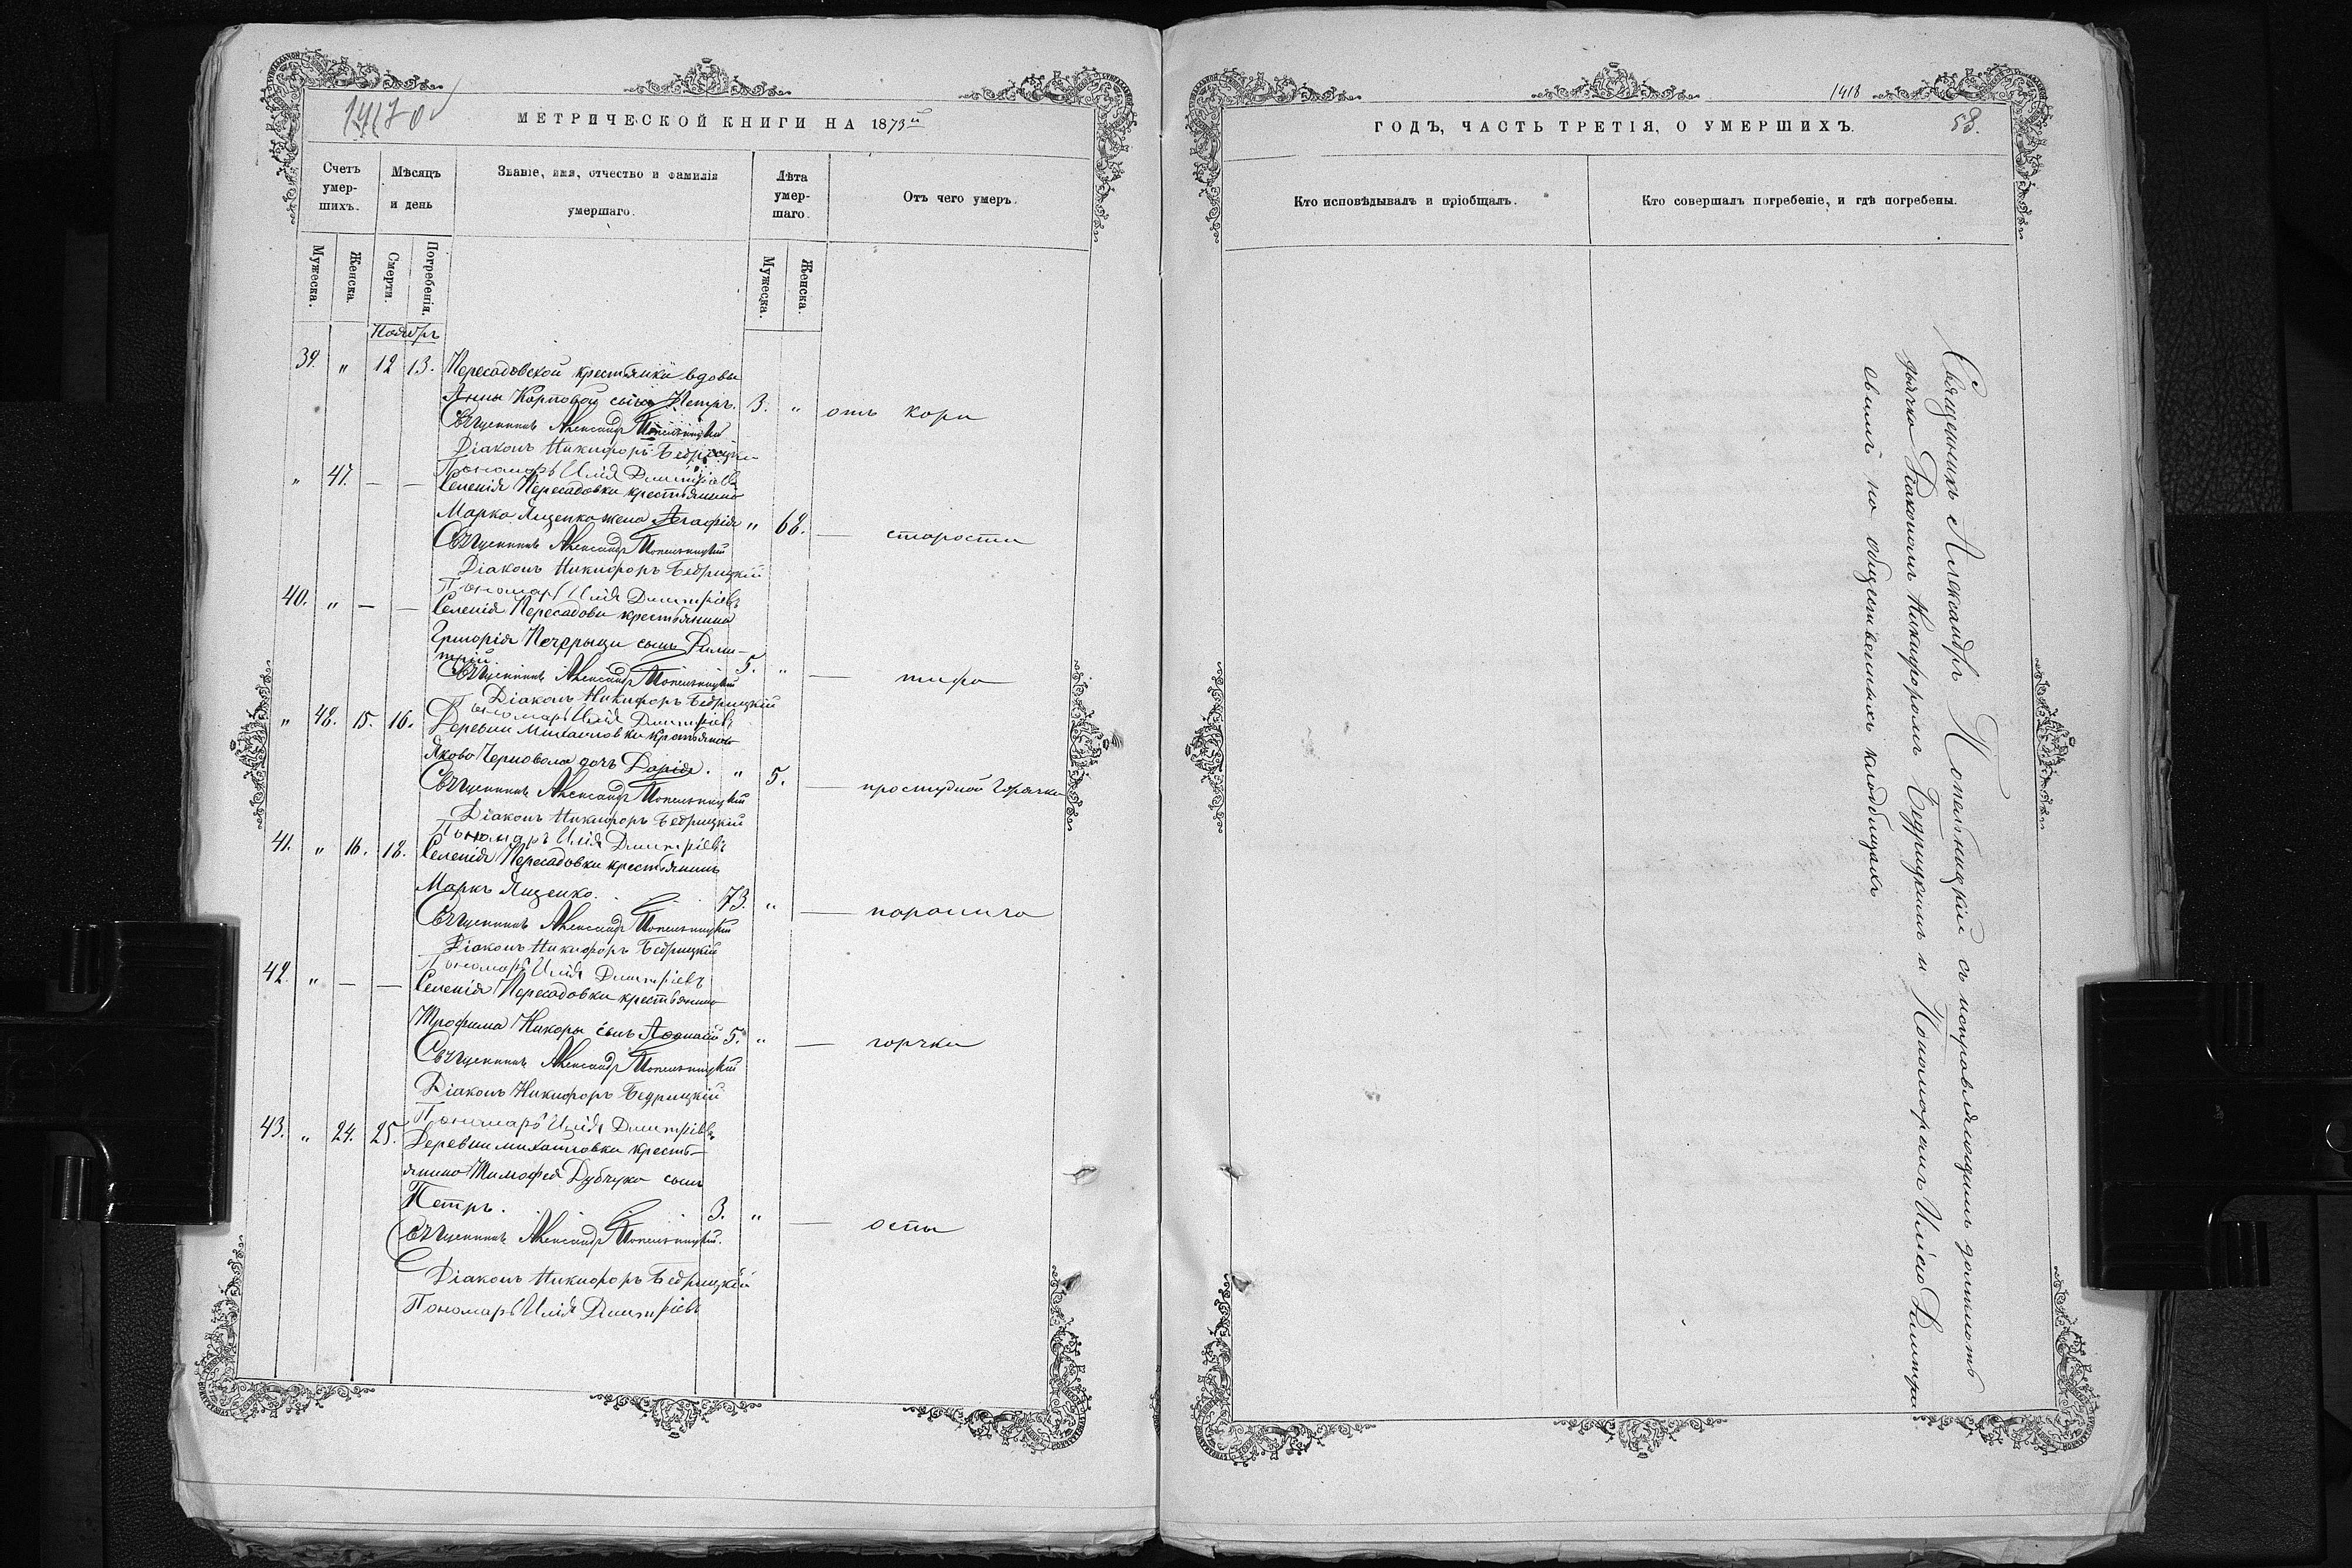 МЕТРИЧЕСКОЙ КНИГИ НА 1873й
Счетъ умер-шихъ.
Мѣсяцъ и день
Званіе, имя, отчество и фамилія умершаго.
Лѣта умер-шаго.
Отъ чего умеръ.
Мужеска.
Женска.
Смерти.
Погребенія.
Мужеска.
Женска.
Ноябрь
39. " 12 13. Пересадовской крестьянки вдовы
Анны Карповой сынъ Петръ. 3. " отъ кори
Священникъ Александръ Попельницкій
Діаконъ Никифоръ Бедрицкій
Пономарь Илія Димитріевъ
" 47. — — Селенія Пересадовки крестьянина
Марка Яценка жена Агафія " 68. — старости
Священникъ Александръ Попельницкій
Діаконъ Никифоръ Бедрицкій
Пономарь Илія Димитріевъ
40. " — — Селенія Пересадовки крестьянина
Григорія Печерыцы сынъ Дими-
трій. 5. " — тифа
Священникъ Александръ Попельницкій
Діаконъ Никифоръ Бедрицкій
Пономарь Илія Димитріевъ
" 48. 15. 16. Деревни Михайловки крестьянина
Якова Черновола дочь Дарія. " 5. — простудной горячки
Священникъ Александръ Попельницкій
Діаконъ Никифоръ Бедрицкій
Пономарь Илія Димитріевъ
41. " 16. 18. Селенія Пересадовки крестьянинъ
Маркъ Яценко. 73. " — паралича
Священникъ Александръ Попельницкій
Діаконъ Никифоръ Бедрицкій
Пономарь Илія Димитріевъ
42. " — — Селенія Пересадовки крестьянина
Трофима Никоры сынъ Афанасій 5. " — горчки
Священникъ Александръ Попельницкій
Діаконъ Никифоръ Бедрицкій
Пономарь Илія Димитріевъ
43. " 24. 25. Деревни Михайловки кресть-
янина Тимофея Дубчука сынъ
Петръ. 3. " — оспы
Священникъ Александръ Попельницкій.
Діаконъ Никифоръ Бедрицкій
Пономарь Илія Димитріевъ
1418
ГОДЪ, ЧАСТЬ ТРЕТІЯ, О УМЕРШИХЪ.
58.
Кто исповѣдывалъ и пріобщалъ.
Кто совершалъ погребеніе, и гдѣ погребены.
Священникъ Александръ Попельницкій съ исправляющимъ должность
дьячка Діакономъ Никифоромъ Бедрицкимъ и Пономаремъ Иліею Димитріе
свимъ на общественныхъ кладбищахъ